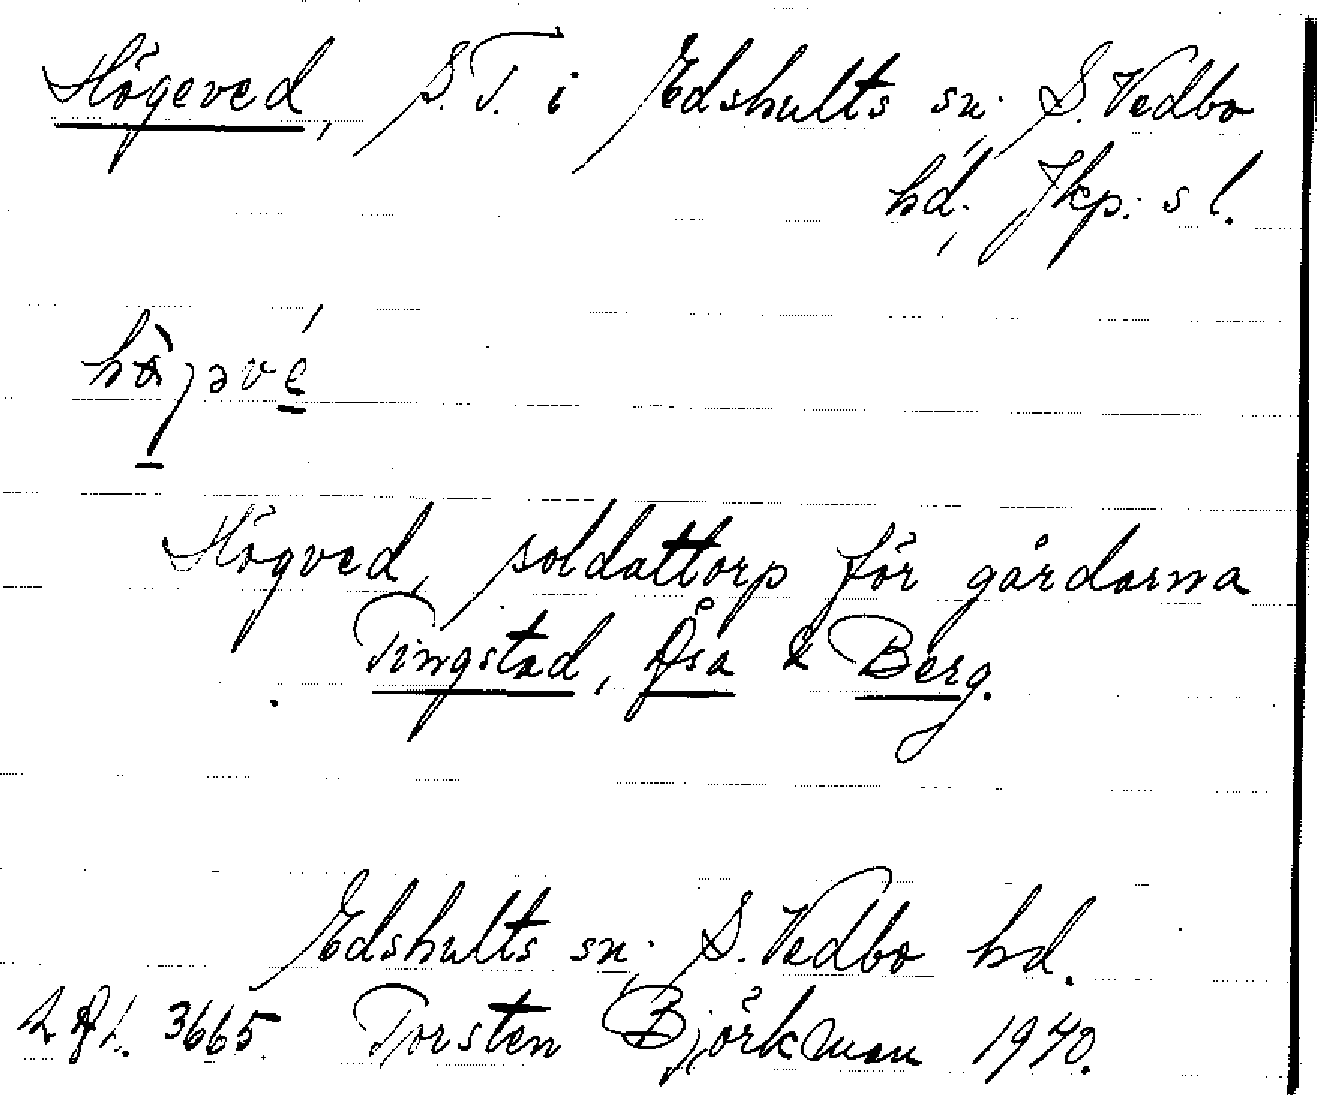 Högeved, S.T. i Edshults sn; S. Vedbo
hd; Jkp:s l.
Högved, soldattorp för gårdarna
Tingstad, Åsa & Berg.
Edshults sn; S. Vedbo hd.
3665. Torsten Björkman 1940.